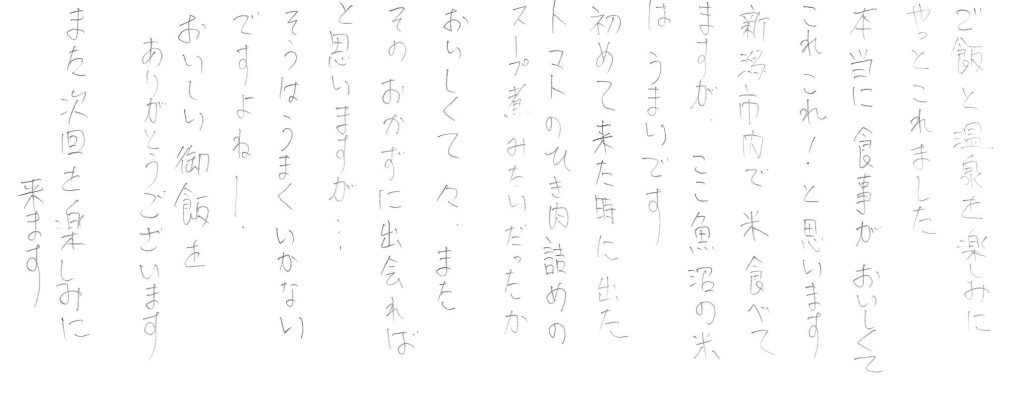 ご飯と温泉を楽しみに
やっとこれました
本当に食事がおいしくて
これこれ！と思います
新潟市内で米食べて
ますが、ここ魚沼の米
は うまいです
初めて来た時に出た
トマトのひき肉詰めの
スープ煮みたいだったか
おいしくて々、また
そのおかずに出会えれば
と思いますが…
そうはうまくいかない
ですよねー．
おいしい御飯を
ありがとうございます
また次回を楽しみに
来ます